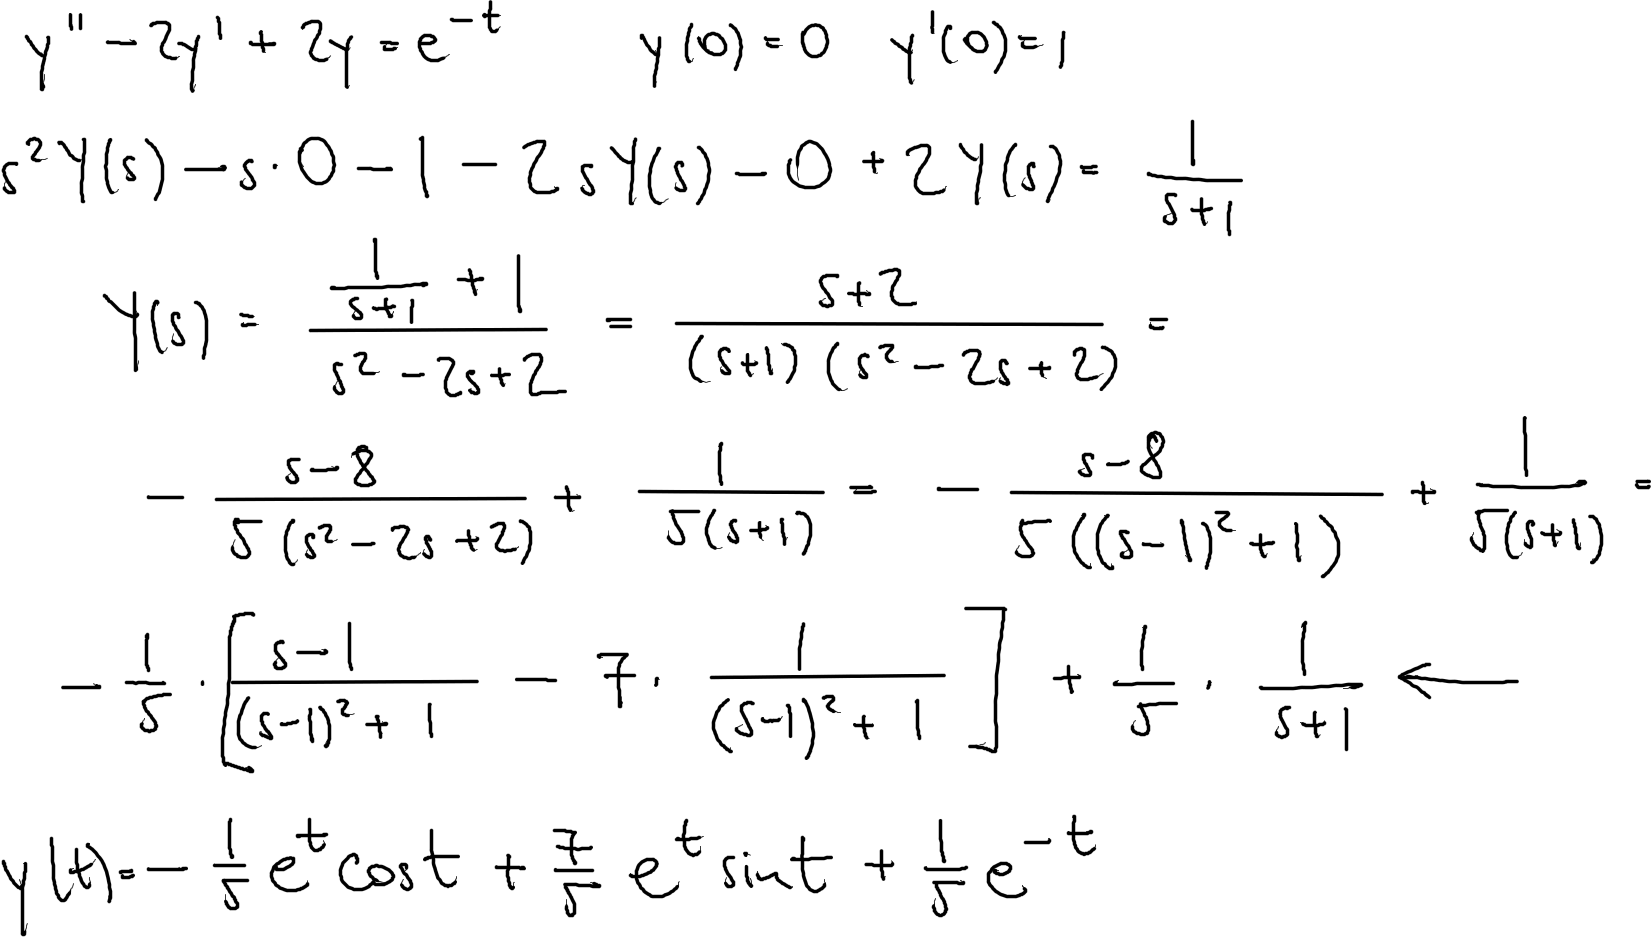 y'' - 2y' + 2y = e^{-t}    y(0) = 0  y'(0) = 1
s^2 Y(s) - s·0 - 1 - 2sY(s) - 0 + 2Y(s) = \frac{1}{s+1}
Y(s) = \frac{\frac{1}{s+1} + 1}{s^2 - 2s + 2} = \frac{s+2}{(s+1)(s^2 - 2s + 2)} =
- \frac{s-8}{5(s^2 - 2s + 2)} + \frac{1}{5(s+1)} = - \frac{s-8}{5((s-1)^2 + 1)} + \frac{1}{5(s+1)} =
- \frac{1}{5} · [\frac{s-1}{(s-1)^2 + 1} - 7 · \frac{1}{(s-1)^2 + 1}] + \frac{1}{5} · \frac{1}{s+1} ←
y(t) = - \frac{1}{5} e^t cos t + \frac{7}{5} e^t sin t + \frac{1}{5} e^{-t}